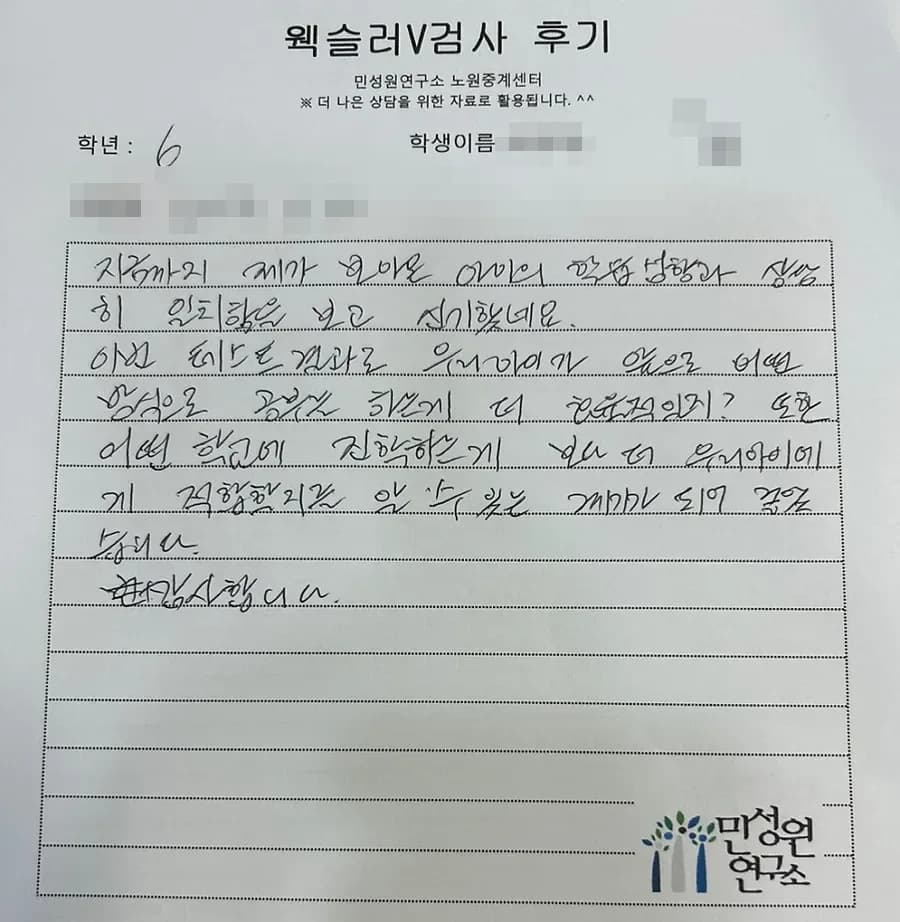 웩슬러V검사 후기
민성원연구소 노원중계센터
※ 더 나은 상담을 위한 자료로 활용됩니다. ^^
학년 : 6 학생이름
지금까지 제가 보아온 아이의 학습성향과 상당
히 일치함을 보고 신기했네요.
이번 테스트결과로 우리아이가 앞으로 어떤
방식으로 공부를 하는게 더 효율적인지? 또한
어떤 학교에 진학하는게 보다 더 우리아이에
게 적합할지를 알 수 있는 계기가 되어 좋았
습니다.
감사합니다.
민성원
연구소